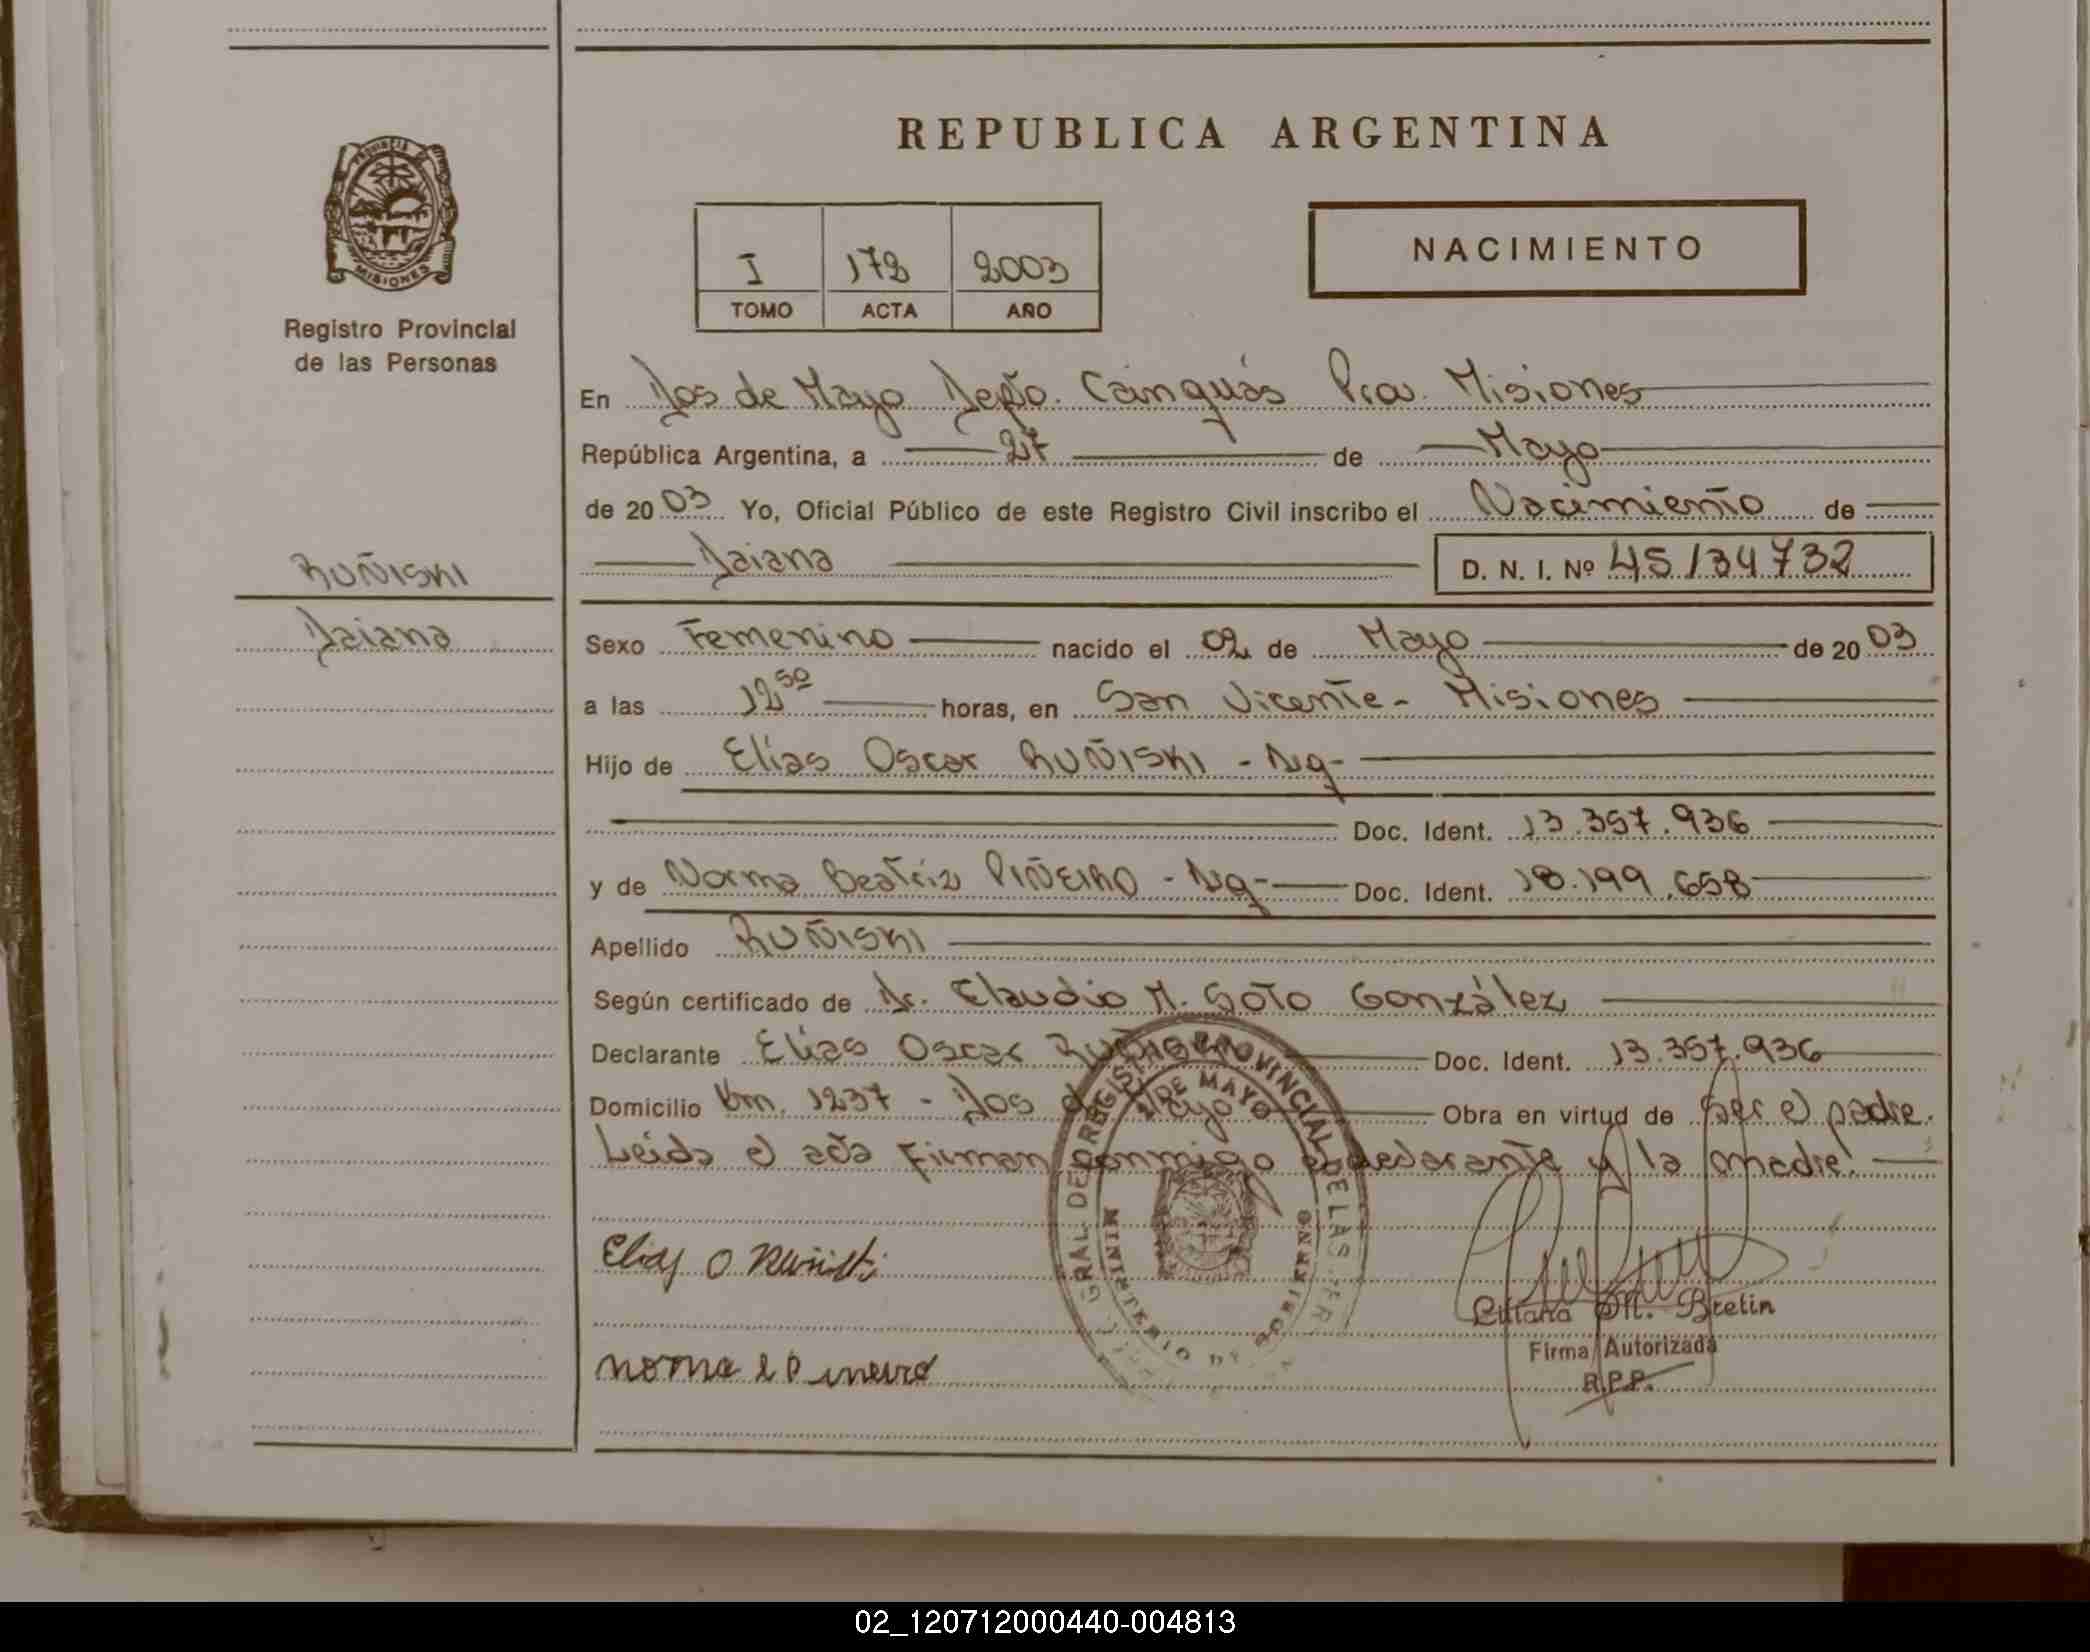 REPUBLICA ARGENTINA
PROVINCIA DE
MISIONES
Registro Provincial
de las Personas
I 172 2003
TOMO ACTA AÑO
NACIMIENTO
En Dos de Mayo Depto. Cainguás Prov. Misiones
República Argentina, a 27 de Mayo
de 2003 Yo, Oficial Público de este Registro Civil inscribo el Nacimiento de
Daiana D. N. I. Nº 45134732
RUÑISKI
Daiana
Sexo Femenino nacido el 02 de Mayo de 2003
a las 12 50 horas, en San Vicente - Misiones
Hijo de Elías Oscar RUÑISKI - Arg -
Doc. Ident. 13.357.936
y de Norma Beatriz PIÑEIRO - Arg - Doc. Ident. 18.199.658
Apellido RUÑISKI
Según certificado de Dr. Claudio M. Soto González
Declarante Elías Oscar RUÑISKI Doc. Ident. 13.357.936
Domicilio Km. 1237 - Dos de Mayo Obra en virtud de Ser el padre.
Leida el acta firman conmigo el declarante y la madre.
GRAL DEL REGISTRO PROVINCIAL DE LAS PER
2 DE MAYO
MINISTERIO DE GOBIERNO
Elias O Ruñiski
Norma B Pineiro
Liliana M. Bretin
Firma Autorizada
R.P.P.
02_120712000440-004813